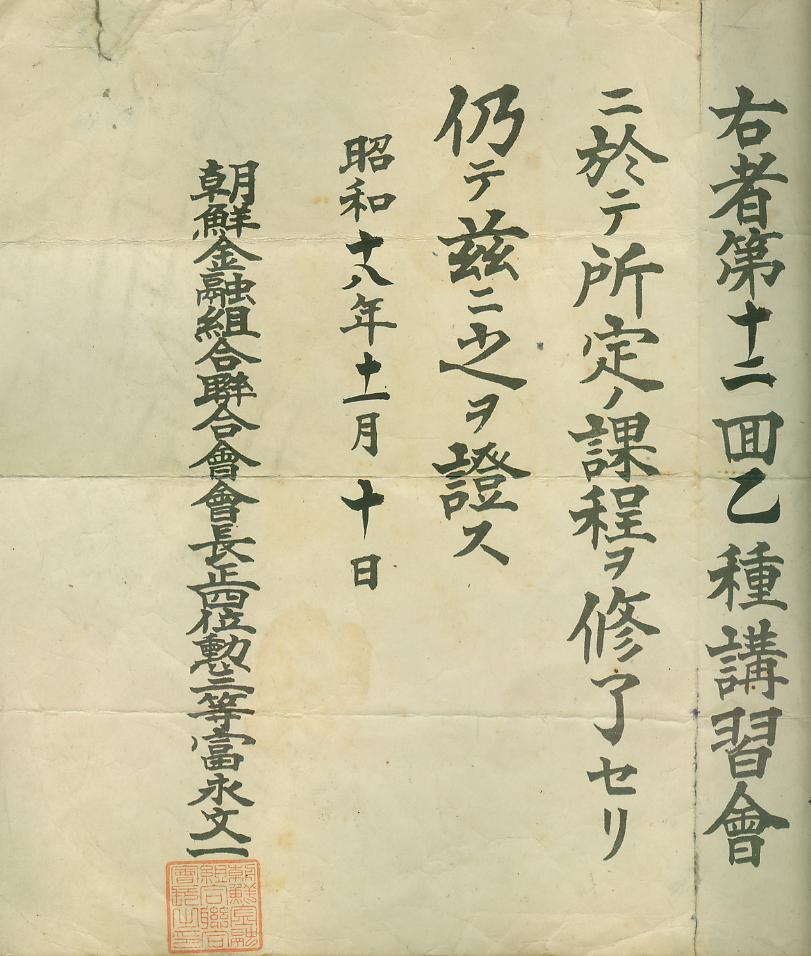 右者第十二回乙種講習會
ニ於テ所定ノ課程ヲ修了セリ
仍テ茲ニ之ヲ證ス
昭和十八年十一月十日
朝鮮金融組合聯合會會長正四位勲三等富永文一
朝鮮金融
組合聯合
會長之印